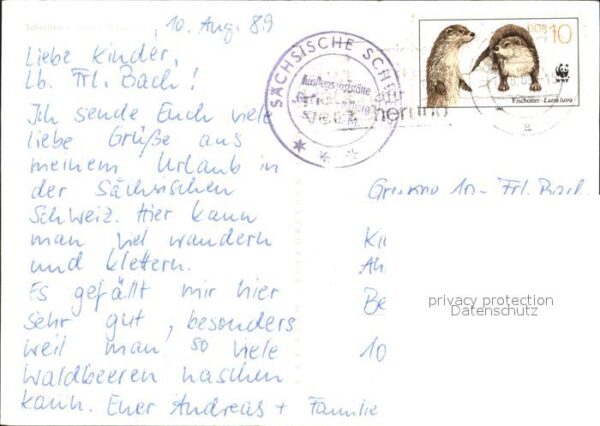 10. Aug. 89
Liebe Kinder,
lb. Frl. Bach!
Ich sende Euch viele
liebe Grüße aus
meinem Urlaub in
der Sächsischen
Schweiz. Hier kann
man viel wandern
und klettern.
Es gefällt mir hier
sehr gut, besonders
weil man so viele
Waldbeeren naschen
kann. Euer Andreas + Familie
SÄCHSISCHE
Ausflugsgaststätte
DDR 10
WWF
Fischotter - Lutra lutra
Frl. Bach
Ki
Ah
Be
10
privacy protection
Datenschutz